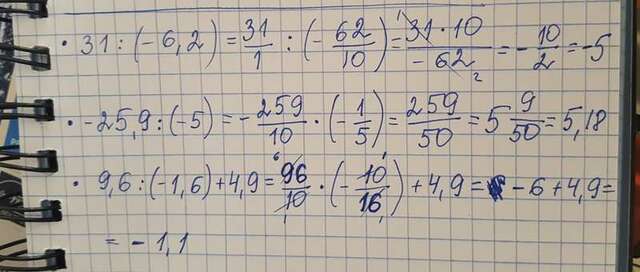 • 31 : (-6,2) = 31/1 : (-62/10) = 31 · 10/-62 = -10/2 = -5
• -25,9 : (-5) = -259/10 · (-1/5) = 259/50 = 5 9/50 = 5,18
• 9,6 : (-1,6) + 4,9 = 96/10 · (-10/16) + 4,9 = -6 + 4,9 =
= -1,1